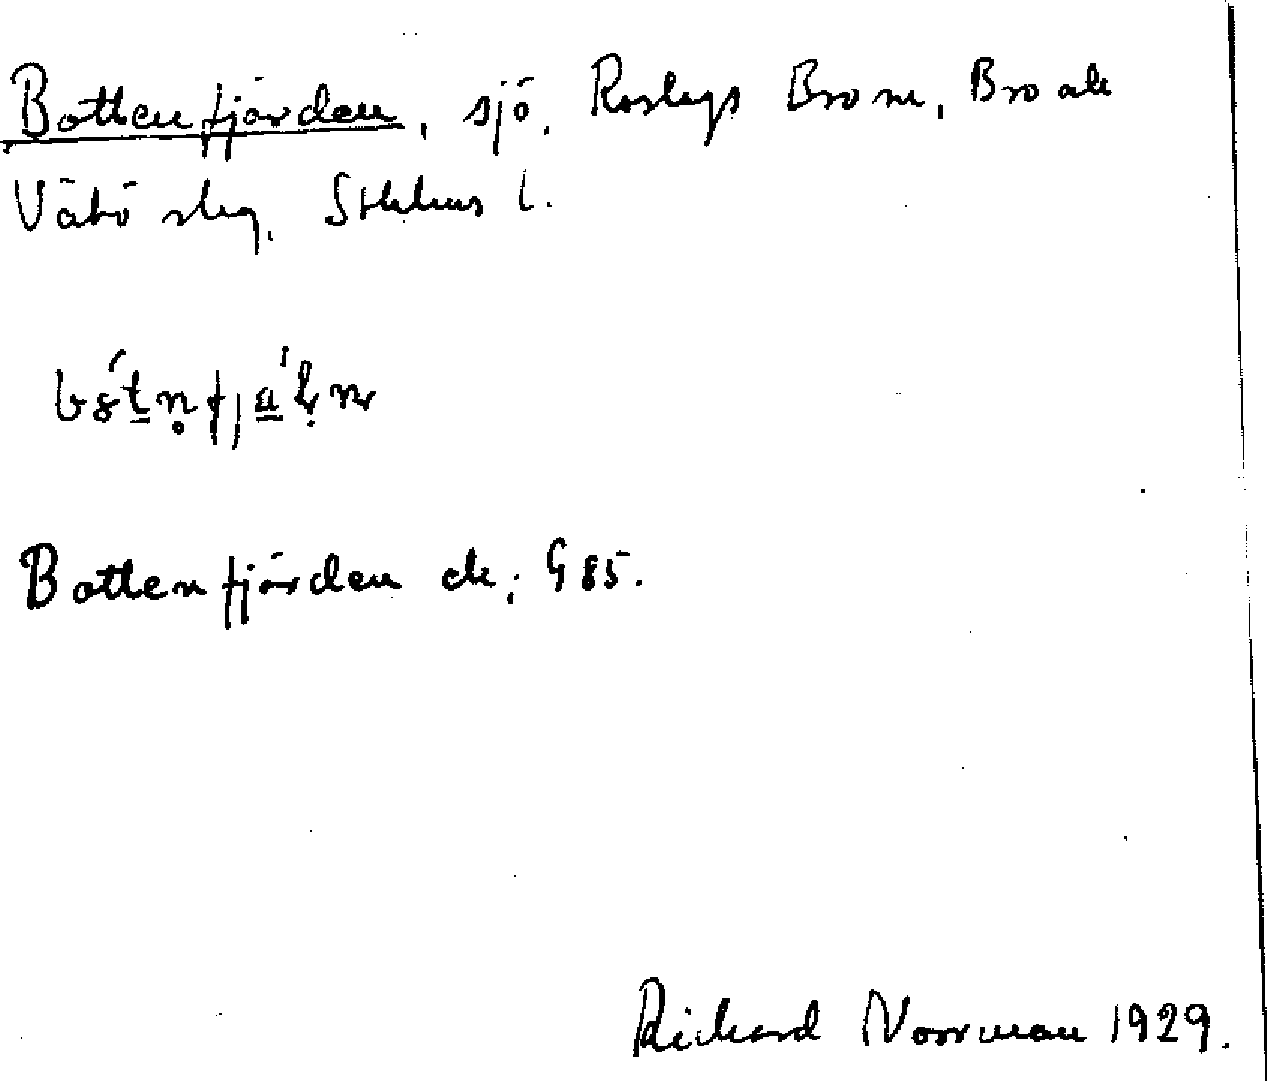 Bottenfjärden, sjö, Roslags Bro sn, Bro och
Vätö slg, Sthlms l.
Bottenfjärden ek; G 85.
Richard Norrman 1929.